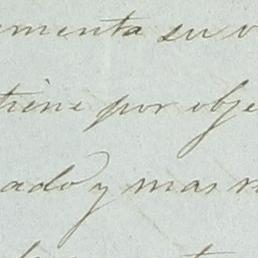 ementa su v
tiene por obje
ado y mas n